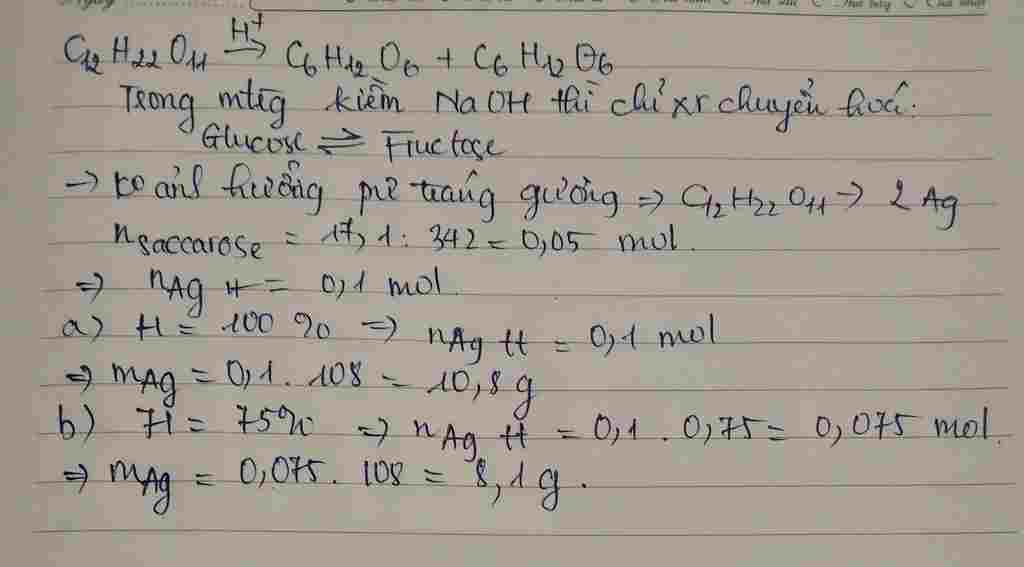 C12H22O11 H+→ C6H12O6 + C6H12O6
Trong mtrg kiềm NaOH thì chỉ xr chuyển hoá:
Glucose ⇌ Fructose
→ ko ảnh hưởng pư tráng gương ⇒ C12H22O11 → 2 Ag
nsaccarose = 17,1 : 342 = 0,05 mol.
⇒ nAg tt = 0,1 mol.
a) H = 100 % ⇒ nAg tt = 0,1 mol
⇒ mAg = 0,1 . 108 = 10,8 g
b) H = 75% ⇒ nAg tt = 0,1 . 0,75 = 0,075 mol.
⇒ mAg = 0,075 . 108 = 8,1 g.